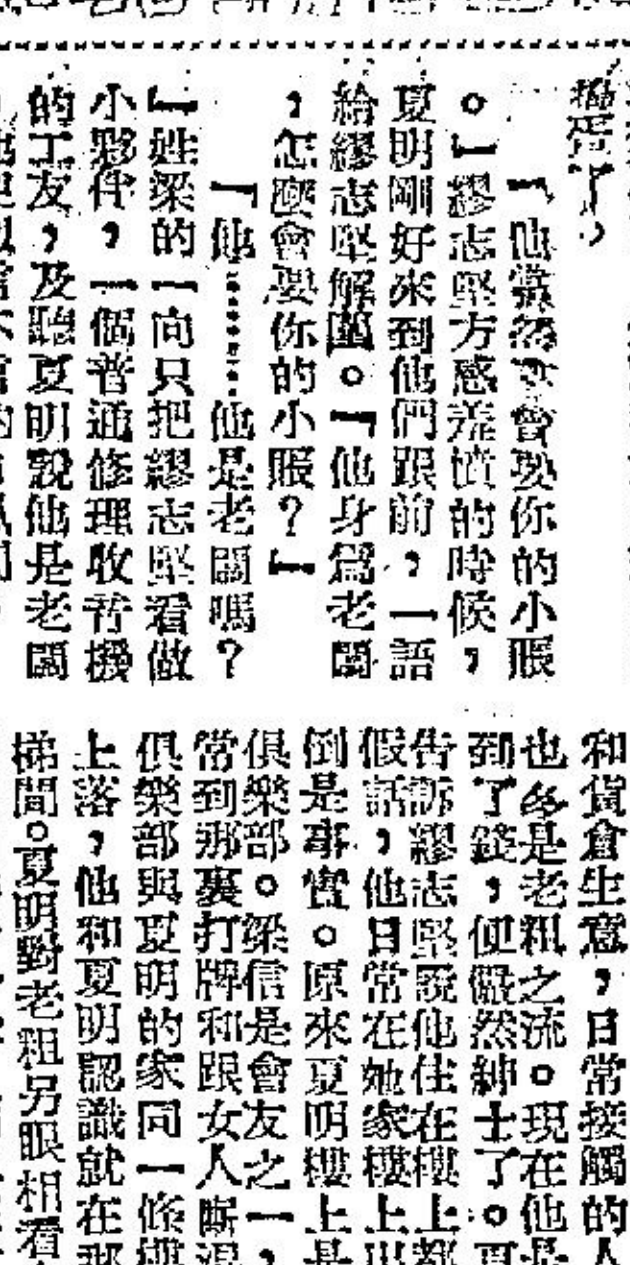 搗蛋了。
「他當然不會要你的小賬
。」繆志堅方感羞憤的時候，
夏明剛好來到他們跟前，一語
給繆志堅解圍。「他身爲老闆
，怎麼會要你的小賬？」
「他……他是老闆嗎？
」姓梁的一向只把繆志堅看做
小夥伴，一個普通修理收音機
的工友，及聽夏明說他是老闆
和貨倉生意，日常接觸的人
也多是老粗之流。現在他是
到了錢，便儼然紳士了。
告訴繆志堅說他住在樓上都
假話，他日常在她家樓上出
倒是事實。原來夏明樓上是
俱樂部。梁信是會友之一，
常到那裏打牌和跟女人廝混
俱樂部與夏明的家同一條樓
上落，他和夏明認識就在那
梯間。夏明對老粗另眼相看